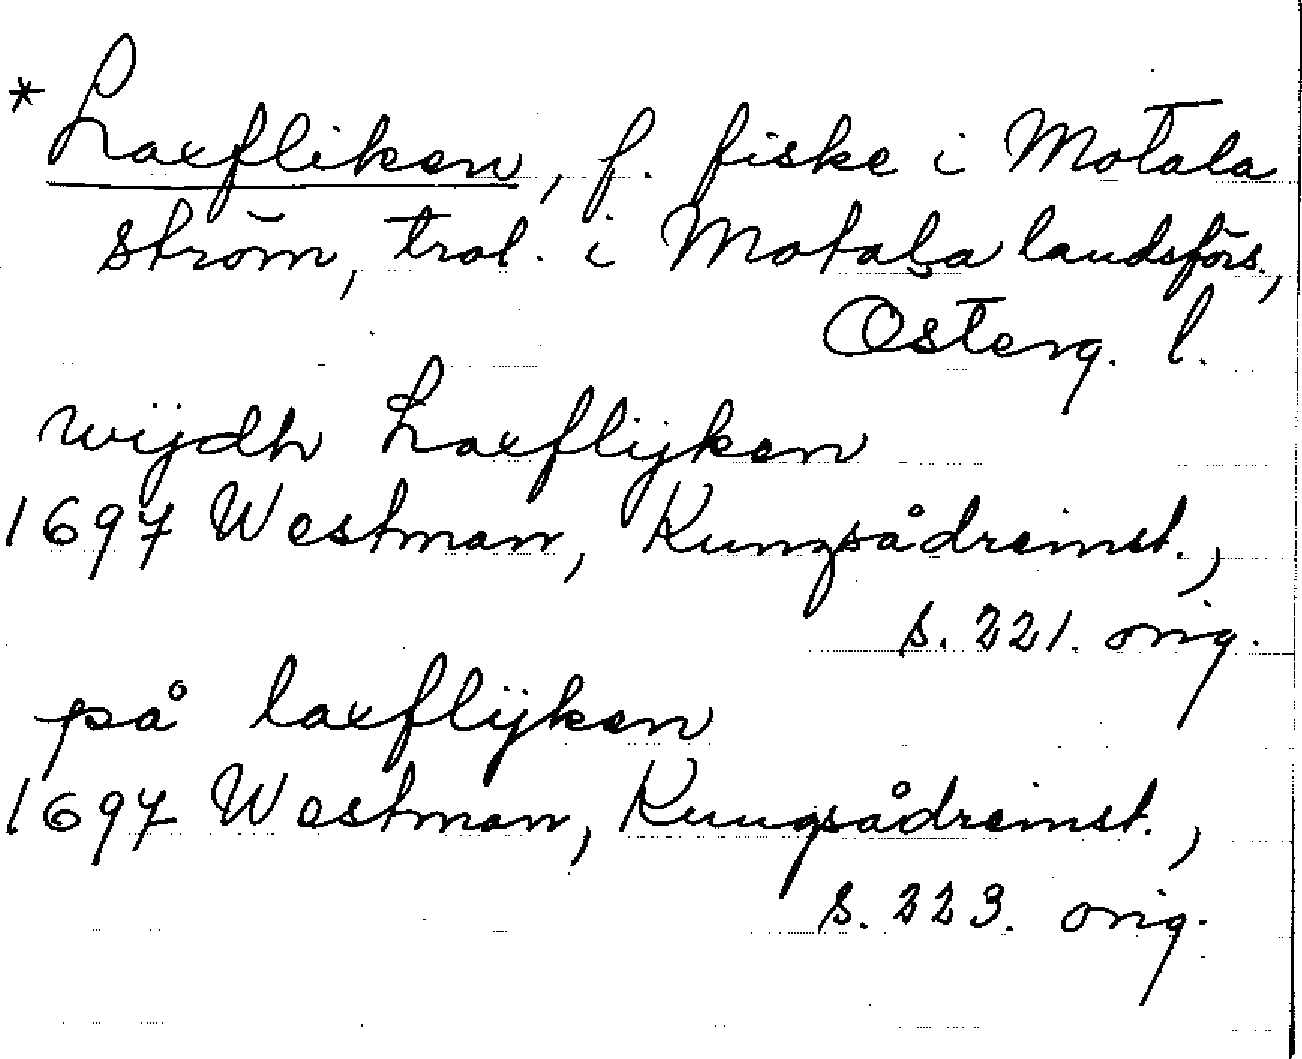 * Laxfliken, f. fiske i Motala
ström, trol. i Motala landsförs.,
Österg. l.
wijdh Laxflijken
1697 Westman, Kungsådreinst.,
s. 221. orig.
på laxflijken
1697 Westman, Kungsådreinst.,
s. 223. orig.